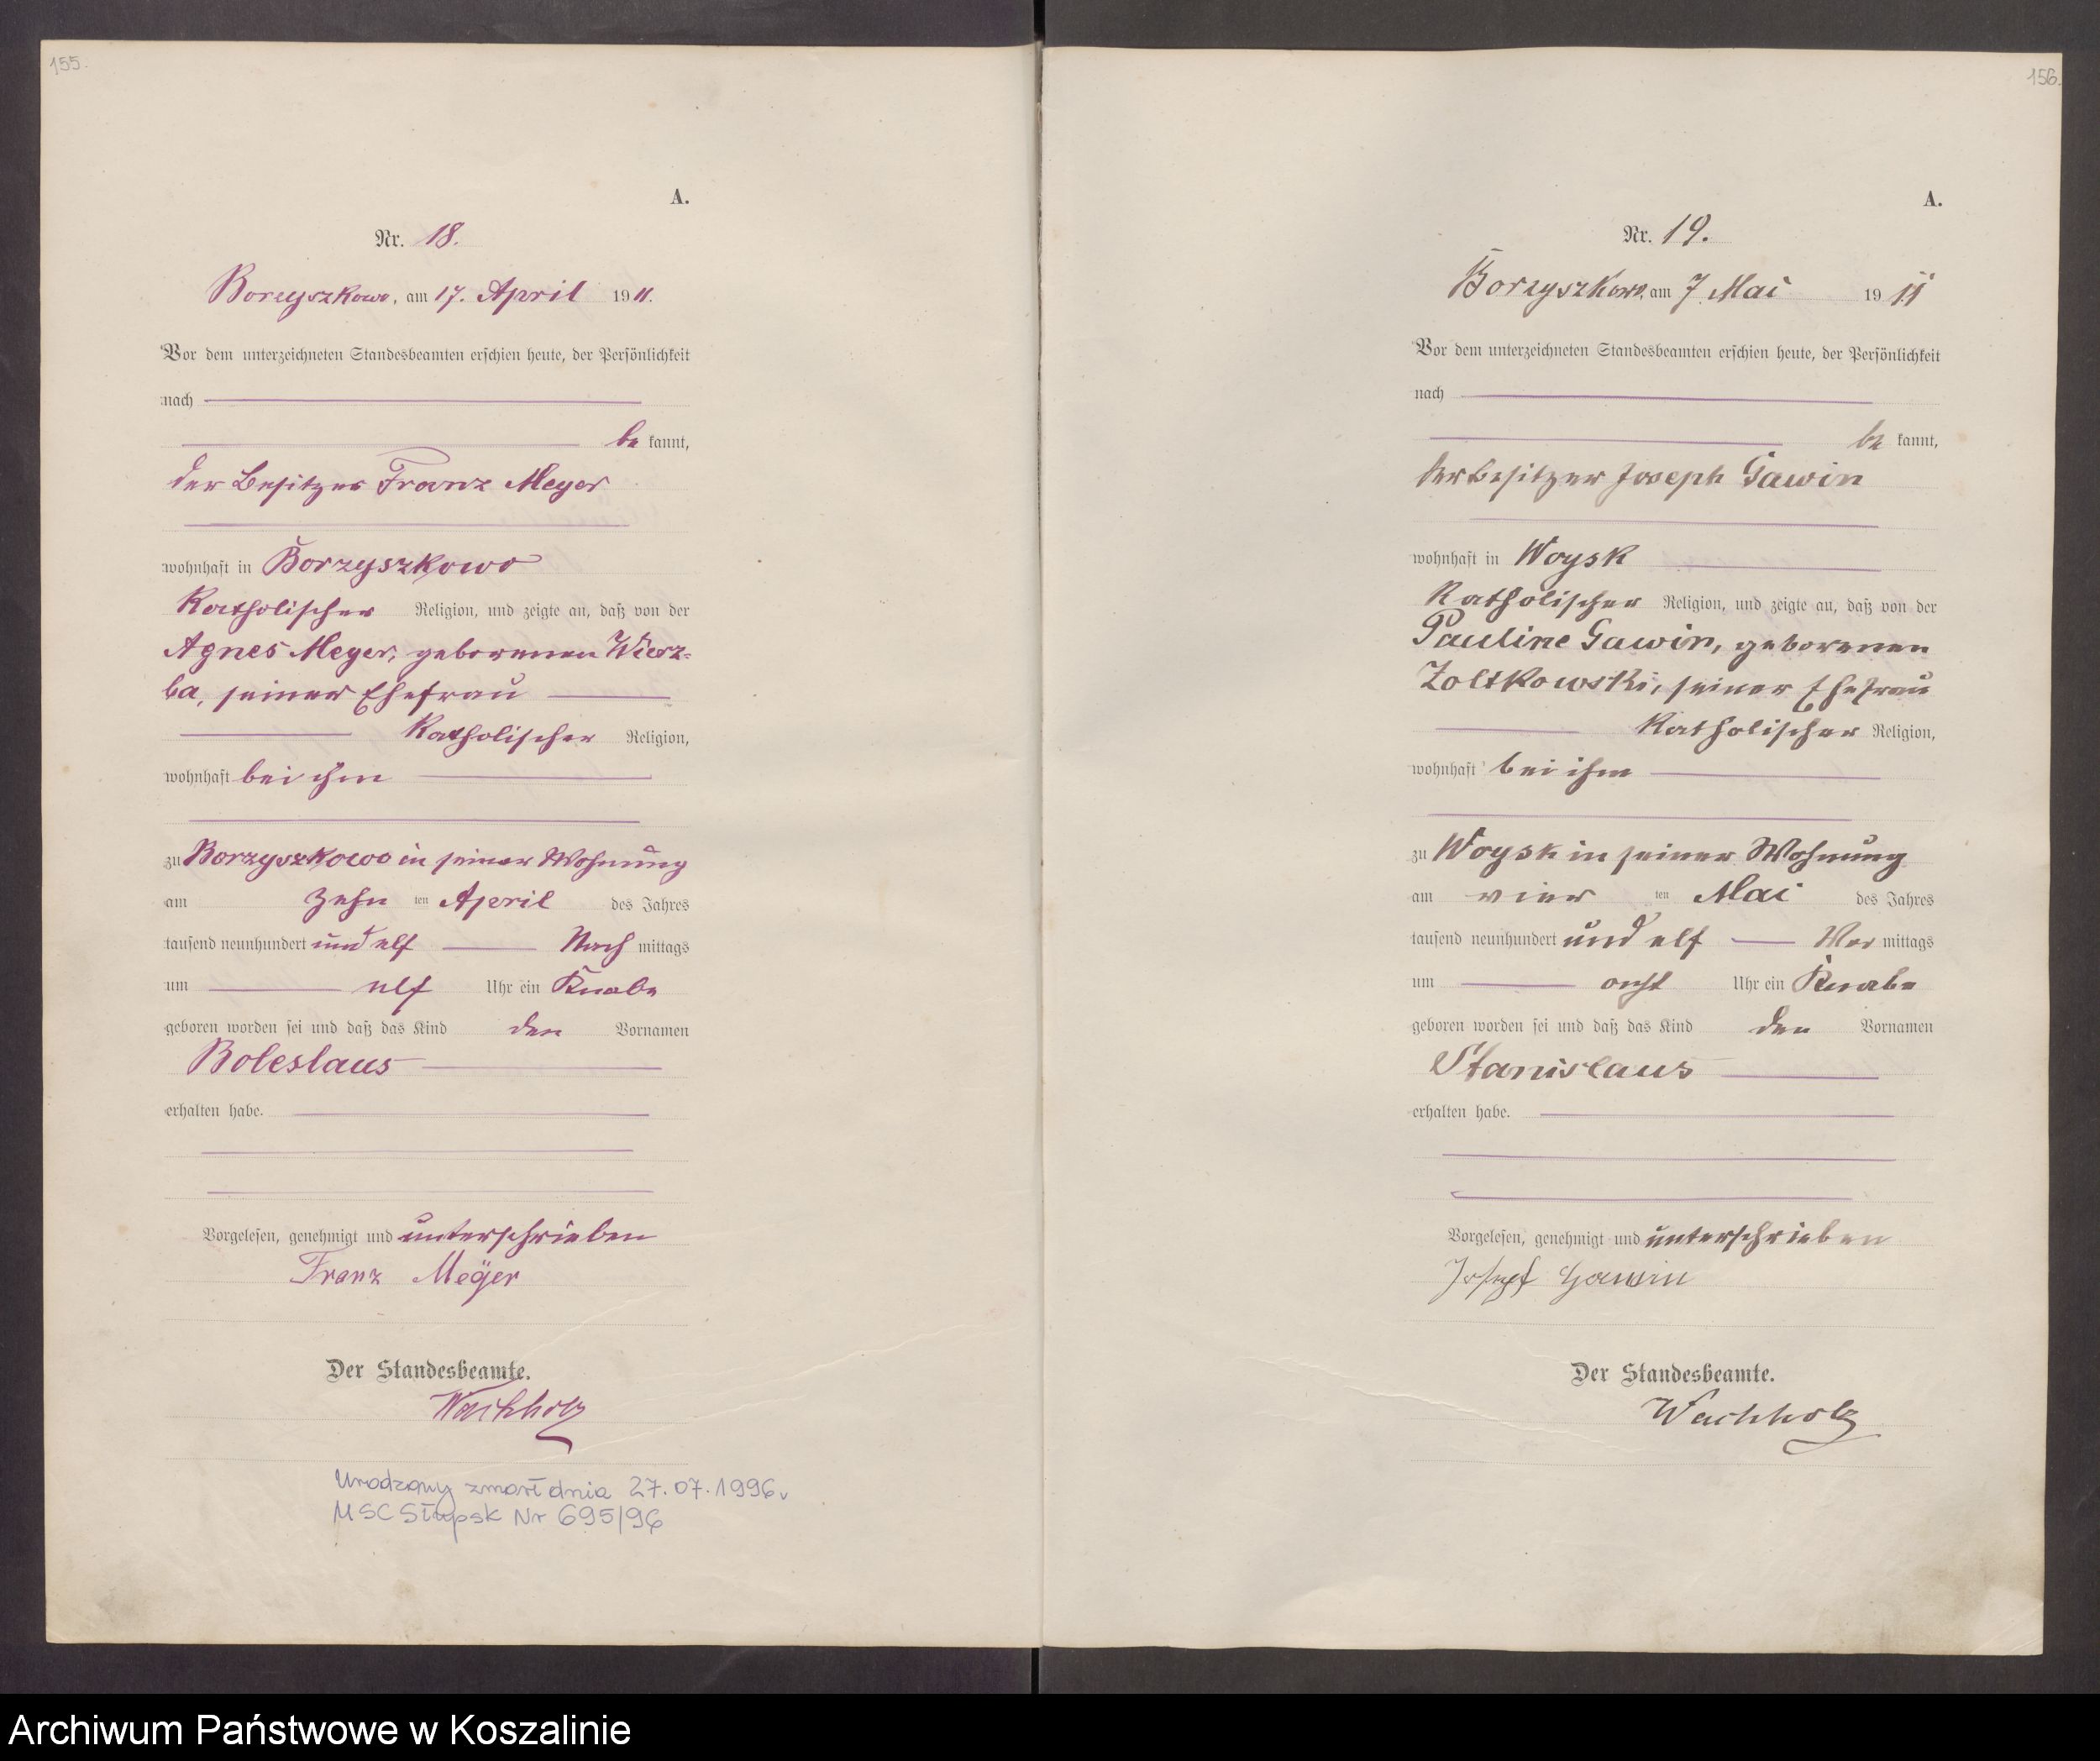 155.
A.
Nr. 18.
Borzyszkowo, am 17. April 1911.
Vor dem unterzeichneten Standesbeamten erschien heute, der Persönlichkeit
nach
be kannt,
der Besitzer Franz Meyer
wohnhaft in Borzyszkowo
Katholischer Religion, und zeigte an, daß von der
Agnes Meyer, geborenen Wierz-
ba, seiner Ehefrau
Katholischer Religion,
wohnhaft bei ihm
zu Borzyszkowo in seiner Wohnung
am zehn ten April des Jahres
tausend neunhundert und elf Nach mittags
um elf Uhr ein Knabe
geboren worden sei und daß das Kind den Vornamen
Boleslaus
erhalten habe.
Vorgelesen, genehmigt und unterschrieben
Franz Meÿer
Der Standesbeamte.
Wachholz
Urodzony zmarł dnia 27.07.1996r
MSC Słupsk Nr 695/96
156.
A.
Nr. 19.
Borzyszkowo, am 7. Mai 1911
Vor dem unterzeichneten Standesbeamten erschien heute, der Persönlichkeit
nach
be kannt,
der Besitzer Joseph Gawin
wohnhaft in Woysk
Katholischer Religion, und zeigte an, daß von der
Pauline Gawin, geborenen
Zoltkowski, seiner Ehefrau
Katholischer Religion,
wohnhaft bei ihm
zu Woysk in seiner Wohnung
am vier ten Mai des Jahres
tausend neunhundert und elf Vor mittags
um acht Uhr ein Knabe
geboren worden sei und daß das Kind den Vornamen
Stanislaus
erhalten habe.
Vorgelesen, genehmigt und unterschrieben
Josepf Gawin
Der Standesbeamte.
Wachholz
Archiwum Państwowe w Koszalinie